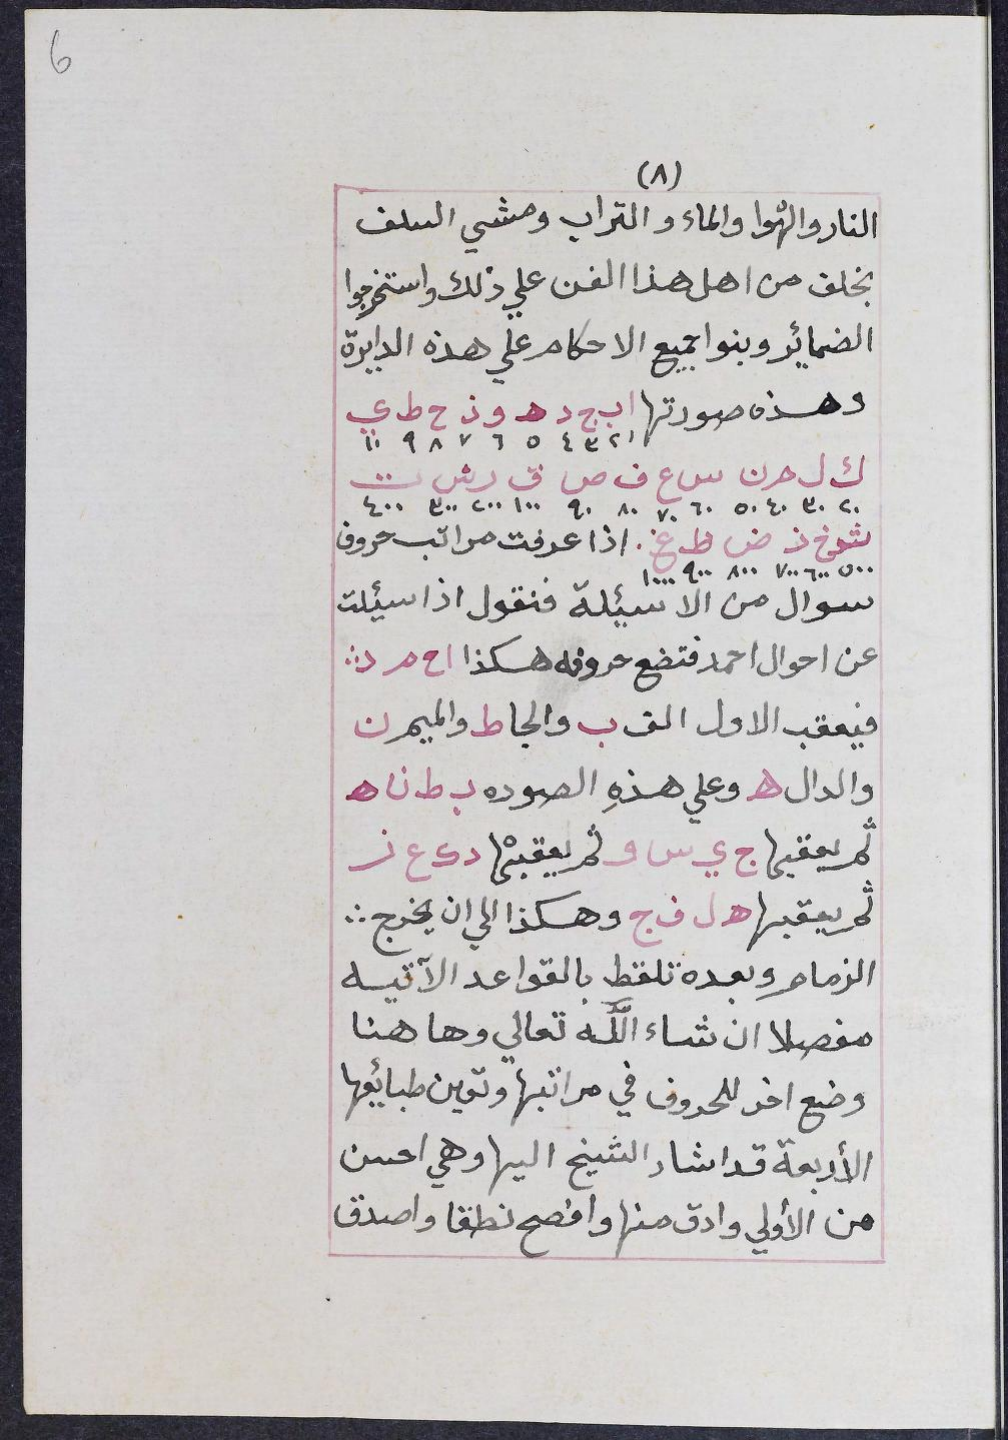 6
(٨)
النار والهوا والماء و التراب ومشي السلف
بخلف من اهل هذا الفن علي ذلك واستخرجوا
الضمائر وبنوا جميع الاحكام علي هذه الدايرة
وهذه صورتها ا ب ج د ه و ز ح ط ي
١ ٢ ٣ ٤ ٥ ٦ ٧ ٨ ٩ ١٠
ك ل م ن س ع ف ص ق ر ش ت
٢٠ ٣٠ ٤٠ ٥٠ ٦٠ ٧٠ ٨٠ ٩٠ ١٠٠ ٢٠٠ ٣٠٠ ٤٠٠
ث خ ذ ض ظ غ . اذا عرفت مراتب حروف
٥٠٠ ٦٠٠ ٧٠٠ ٨٠٠ ٩٠٠ ١٠٠٠
سوال من الاسئيلة فنقول اذا سيئلت
عن احوال احمد فتضع حروفه هكذا ا ح م د
فيعقب الاول الف ب والحا ط والميم ن
والدال ه وعلي هذهِ الصوره ب ط ن ه
ثم يعقبها ج ي س و ثم يعقبها د ك ع ز
ثم يعقبها ه ل ف ح وهكذا الي ان يخرج
الزمام وبعده تلقط بالقواعد الآتيه
مفصلا ان شاء اللّه تعالي وها هنا
وضع اخر للحروف في مراتبها وتعين طبائعها
الأربعة قد اشار الشيخ اليها وهي احسن
من الأولي وادق منها وافصح نطقا واصدق